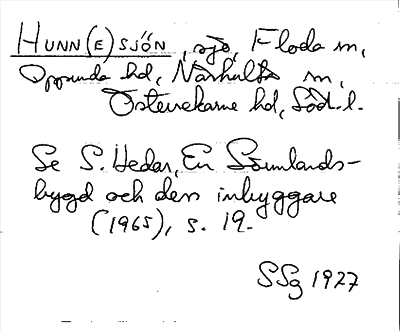 HUNN(E)SJÖN, sjö, Floda sn,
Oppunda hd, Närhulta sn,
Österrekarne hd, Södl.
Se S. Hedar, En Sörmlands-
bygd och dess inbyggare
(1965), s. 19.
SSg 1927